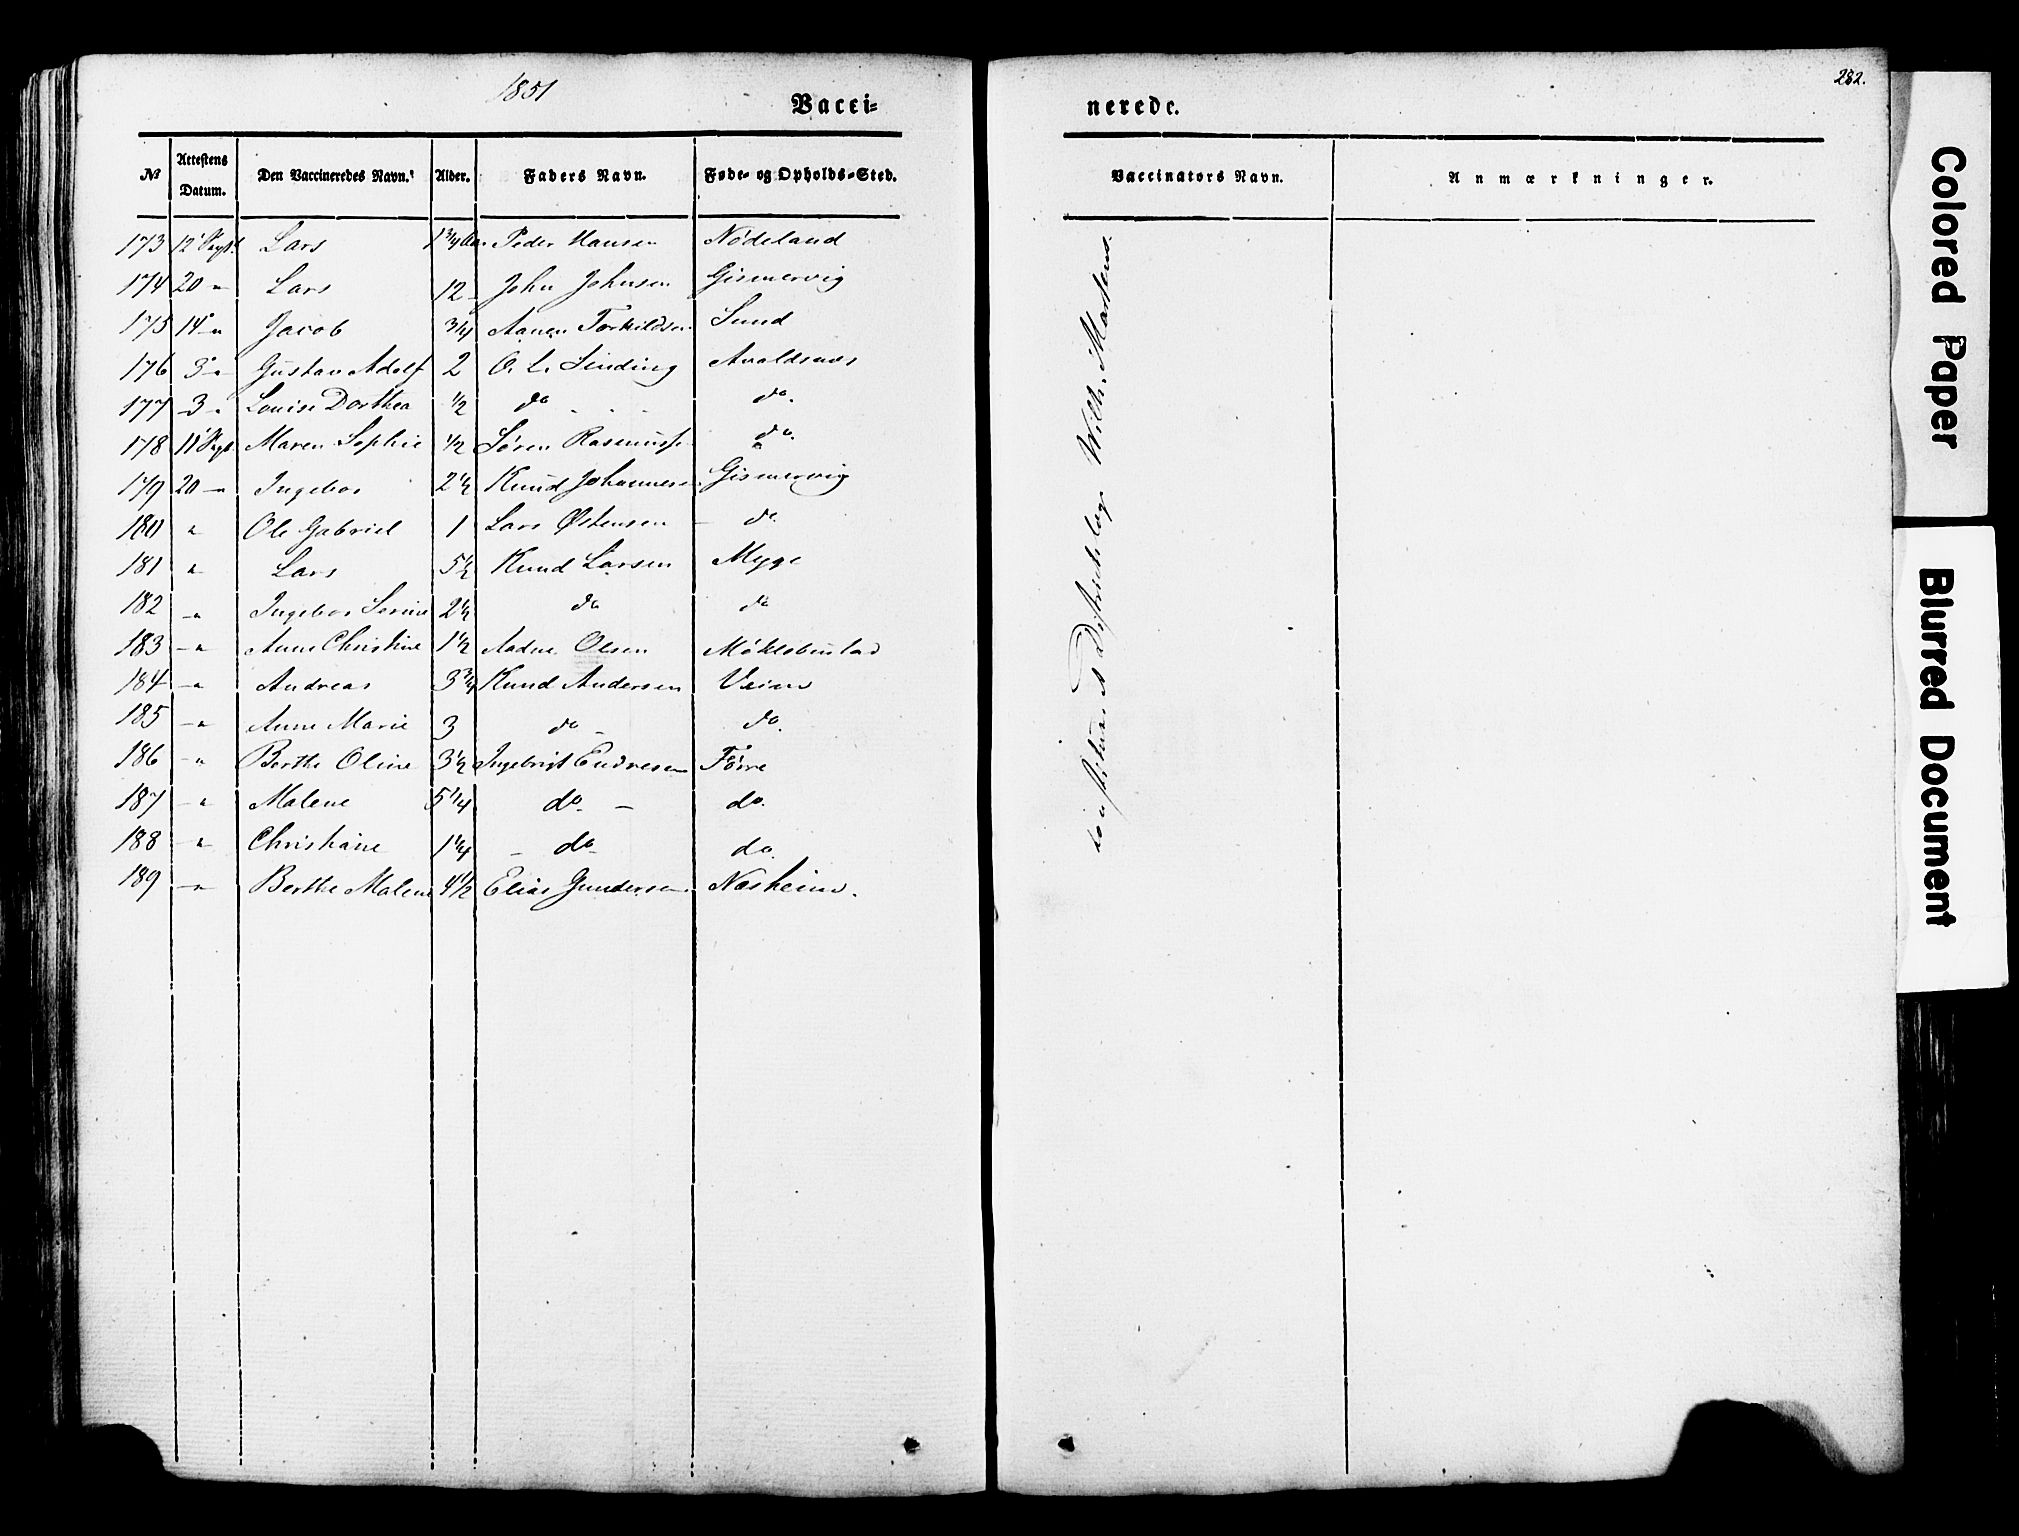 1851
Vacci-
nerede.
282.
№ Attestens Datum. Den Vaccineredes Navn. Alder. Faders Navn. Føde- og Opholds-Sted. Vaccinators Navn. Anmærkninger.
173 12 Lars 1 3/4 Aar Peder Hansen Nødeland
174 20 " Lars 12 John Johnsen Gismervig
175 14 " Jacob 3/4 Aanen Torkildsen Sund
176 3 " Gustav Adolf 2 O. L. Sinding Avaldsnæs
177 3 " Louise Dorthea 1/2 do do.
178 11 Maren Sophie 1/2 Sören Rasmuss. do.
179 20 " Ingebor 2 1/2 Knud Johannesen Gismervig
180 " Ole Gabriel 1 Lars Østensen do.
181 " Lars 5 1/2 Knud Larsen Myge
182 " Ingebor Serine 2 1/2 do do
183 " Anne Christine 1 1/2 Aadne Olsen Møklebustad
184 " Andreas 3 3/4 Knud Andersen
185 " Anne Marie 3 do do.
186 " Berthe Oline 3 1/2 Ingebrigt Endresen Førre
187 " Malene 5 1/4 do. do.
188 " Christiane 1 1/4 do do.
189 " Berthe Malene 4 1/2 Elias Gundersen Næsheim.
constitueret Districtslæge Wilh. Martens.
Colored Paper
Blurred Document